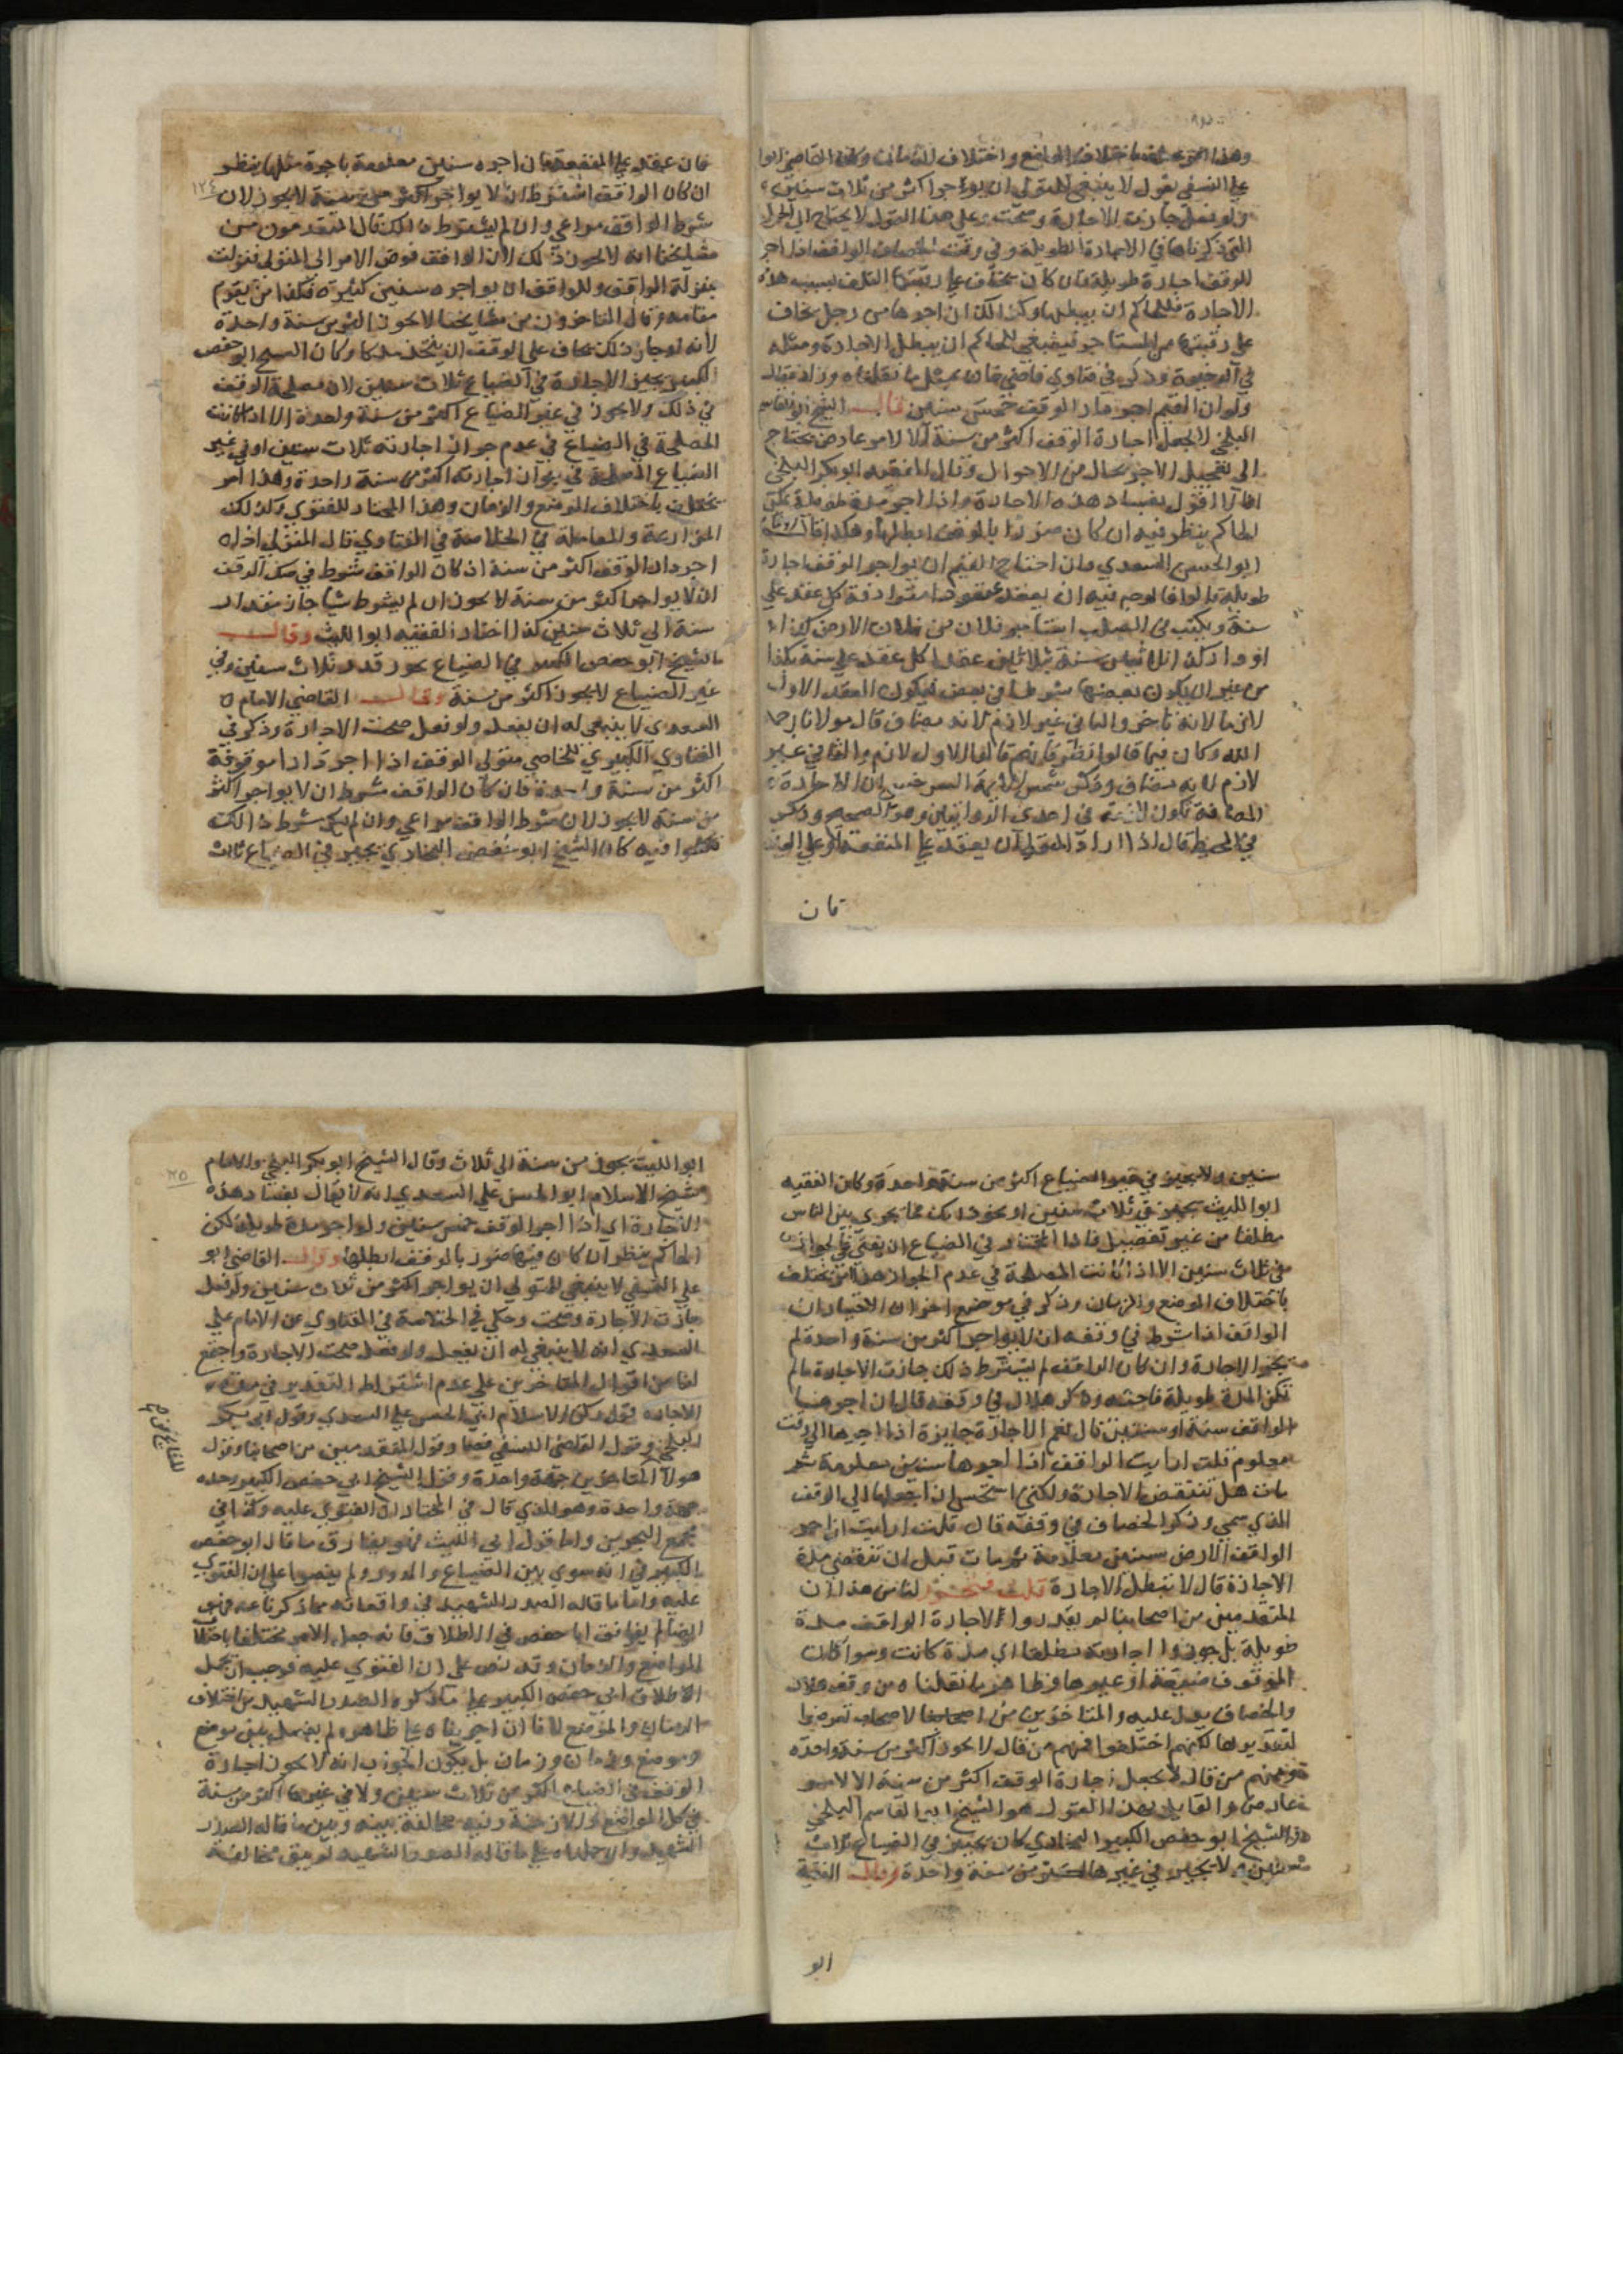 وهذا امر يختلف باختلاف المواضع واختلاف الزمان وكان القاضي ابوا
علي النسفي يقول لا ينبغي للمتولي ان يواجر اكثر من ثلاث سنين
ولو فعل جازت الاجارة وصحت وعلى هذا القول لا يحتاج الى الحيل
التي ذكرناها في الاجارة الطويلة وفي وقف الخصاف الواقف اذا اجر
الوقف اجارة طويلة فان كان يخاف على رقبتها التلف بسبب هذه
الاجارة فللحاكم ان يبطلها وكذلك ان اجرها من رجل يخاف
على رقبتها من المستاجر فينبغي للحاكم ان يبطل الاجارة ومثله
في الذخيرة وذكر في فتاوي قاضي خان بمثل ما نقلناه وزاد فقال
ولو ان القيم اجر دار الوقف خمس سنين قال الشيخ ابو القاسم
البلخي لا يجعل اجارة الوقف اكثر من سنة الا لامر عارض يحتاج
الى تعجيل الاجر بحال من الاحوال وقال الفقيه ابو بكر البلخي
انا لا اقول بفساد هذه الاجارة اذا اجر مدة طويلة لكن
الحاكم ينظر فيه ان كان ضررا بالوقف ابطلها وهكذا قال
ابو الحسن السعدي فان احتاج القيم ان يواجر الوقف اجارة
طويلة قالوا فالوجه فيه ان يعقد عقودا مترادفة كل عقد على
سنة ويكتب في الصك استاجر فلان بن فلان الارض كذا
او دار كذا ثلاثين سنة بثلاثين عقدا كل عقد على سنة بكذا
من غير ان يكون بعضها شرطا في بعض فيكون العقد الاول
لازما لانه ناجز والثاني غير لازم لانه مضاف قال مولانا رحمه
الله وكان فيما قالوا نظر فانهم قالوا الاول لازم والثاني غير
لازم لانه مضاف وذكر شمس الائمة السرخسي ان الاجارة
المضافة تكون لازمة في احدى الروايتين وهو الصحيح وذكر
في المحيط قال اذا اراد المتولي ان يعقد على المنفعة او على العين
فان
فان عقد على المنفعة فان اجره سنين معلومة باجرة مثلها ينظر
ان كان الواقف اشترط ان لا يواجر اكثر من سنة لا يجوز لان
١٢٤
شرط الواقف مراعي وان لم يشترط ذلك قال المتقدمون من
مشايخنا انه لا يجوز ذلك لان الواقف فوض الامر الى المتولي فنزلت
منزلة الواقف وللواقف ان يواجره سنين كثيرة فكذا من يقوم
مقامه وقال المتاخرون من مشايخنا لا يجوز اكثر من سنة واحدة
لانه لو جاز ذلك يخاف على الوقف ان يتخذ ملكا وكان الشيخ ابو حفص
الكبير يجيز الاجارة في الضياع ثلاث سنين لان مصلحة الوقف
في ذلك ولا يجوز في غير الضياع اكثر من سنة واحدة الا اذا كانت
المصلحة في الضياع في عدم جواز اجارته ثلاث سنين او في غير
الضياع المصلحة في جواز اجارته اكثر من سنة واحدة وهذا امر
يختلف باختلاف الموضع والزمان وهذا المختار للفتوي وكذلك
المزارعة والمعاملة في الخلاصة في الفتاوي قال المتولي اذا
اجر دار الوقف اكثر من سنة اذ كان الواقف شرط في صك الوقف
ان لا يواجر اكثر من سنة لا يجوز ان لم يشرط شيا جاز مقدار
سنة الى ثلاث سنين كذا اختار الفقيه ابوا الليث وقال
الشيخ ابو حفص الكبير في الضياع يجوز قدر ثلاث سنين وفي
غير الضياع لا يجوز اكثر من سنة وقال القاضي الامام
السعدي لا ينبغي له ان يفعل ولو فعل صحت الاجارة وذكر في
الفتاوي الكبري للخاصي متولي الوقف اذا اجر دارا موقوفة
اكثر من سنة واحدة فان كان الواقف شرط ان لا يواجر اكثر
من سنة لا يجوز لان شرط الواقف مراعي وان لم يكن شرط ذلك
تكلموا فيه كان الشيخ ابو حفص البخاري يجيز في الضياع ثلاث
سنين ولا يجيز في غير الضياع اكثر من سنة واحدة وكان الفقيه
ابوا الليث يجيز في ثلاث سنين او نحو ذلك مما يجري بين الناس
مطلقا من غير تفصيل فاذا المختار في الضياع ان يفتي بالجواز
في ثلاث سنين الا اذا كانت المصلحة في عدم الجواز هذا امر يختلف
باختلاف الموضع والزمان وذكر في موضع اخر ان الاختيار ان
الواقف اذا شرط في وقفه ان لا يواجر اكثر من سنة واحدة لم
يجز الاجارة وان كان الواقف لم يشترط ذلك جازت الاجارة ما لم
تكن المدة طويلة فاحشة وذكر هلال في وقفه قال ان اجرها
الواقف سنة او سنتين قال نعم الاجارة جايزة اذا اجرها الى وقت
معلوم قلت ارايت الواقف اذا اجرها سنين معلومة ثم
مات هل تنتقض الاجارة ولكني استحسن ان اجعلها الى الوقف
الذي سمي وذكر الخصاف في وقفه قال قلت ارايت ان اجر
الواقف الارض سنين معلومة ثم مات قبل ان تنقضي مدة
الاجارة قال لا تبطل الاجارة قلت فتحرر لنا من هذا ان
المتقدمين من اصحابنا لم يقدروا الاجارة الواقف مدة
طويلة بل جوزوا اجارته مطلقا اي مدة كانت وسوا كان
الموقوف ضيعة او غيرها وظاهر ما نقلناه من وقف هلال
والخصاف يدل عليه والمتاخرين من اصحابنا لاصحاب تعرضوا
لتقديرها لكنهم اختلفوا فمنهم من قال لا يجوز اكثر من سنة واحدة
ومنهم من قال لا يجعل اجارة الوقف اكثر من سنة الا لامر
عارض والقايل بهذا القول هو الشيخ ابو القاسم البلخي
والشيخ ابو حفص الكبير البخاري كان يجيز في الضياع ثلاث
سنين ولا يجيز في غيرها اكثر من سنة واحدة وقال الفقيه
ابو
ابوا الليث يجوز من سنة الى ثلاث وقال الشيخ ابو بكر البلخي والامام
شيخ الاسلام ابو الحسن علي السعدي انه لا يقال بفساد هذه
الاجارة اي اذا اجر الوقف خمس سنين ولو اجر مدة طويلة لكن
الحاكم ينظر ان كان فيها ضرر بالوقف ابطلها وقال القاضي ابو
علي النسفي لا ينبغي للمتولي ان يواجر اكثر من ثلاث سنين ولو فعل
جازت الاجارة وصحت وحكي في الخلاصة في الفتاوي عن الامام علي
السعدي انه لا ينبغي له ان يفعل ولو فعل صحت الاجارة واجتمع
لنا من اقوال المتاخرين على عدم اشتراط التقدير في مدة
الاجارة قول ركن الاسلام ابي الحسن علي السعدي وقول ابو بكر
البلخي وقول القاضي النسفي فصار وقول المتقدمين من اصحابنا وقول
هولا المتاخرين جهة واحدة وقول الشيخ ابي حفص الكبير وحده
جهة واحدة وهو الذي قال في المختار ان الفتوي عليه وكذا في
مجمع البحرين واما قول ابي الليث فهو يفارق ما قال ابو حفص
الكبير في انه سوي بين الضياع والدور ولم ينصوا على ان الفتوي
عليه واما ما قاله الصدر الشهيد في واقعاته مما ذكرنا عنه فهو
ايضا لم يوافق ابا حفص في الاطلاق فانه جعل الامر مختلفا باختلاف
المواضع والازمان وقد نص على ان الفتوي عليه فوجب ان نحمل
الاطلاق ابي حفص الكبير على ما ذكره الصدر الشهيد من اختلاف
الزمان والموضع لانا ان اجريناه على ظاهره لم يفصل بين موضع
وموضع وزمان وزمان بل يكون الجواب انه لا يجوز اجارة
الوقف في الضياع اكثر من ثلاث سنين ولا في غيرها اكثر من سنة
في كل المواضع والازمنة وفيه مخالفة بينه وبين ما قاله الصدر
الشهيد والا حملناه على ما قاله الصدر الشهيد لم يبق مخالفة